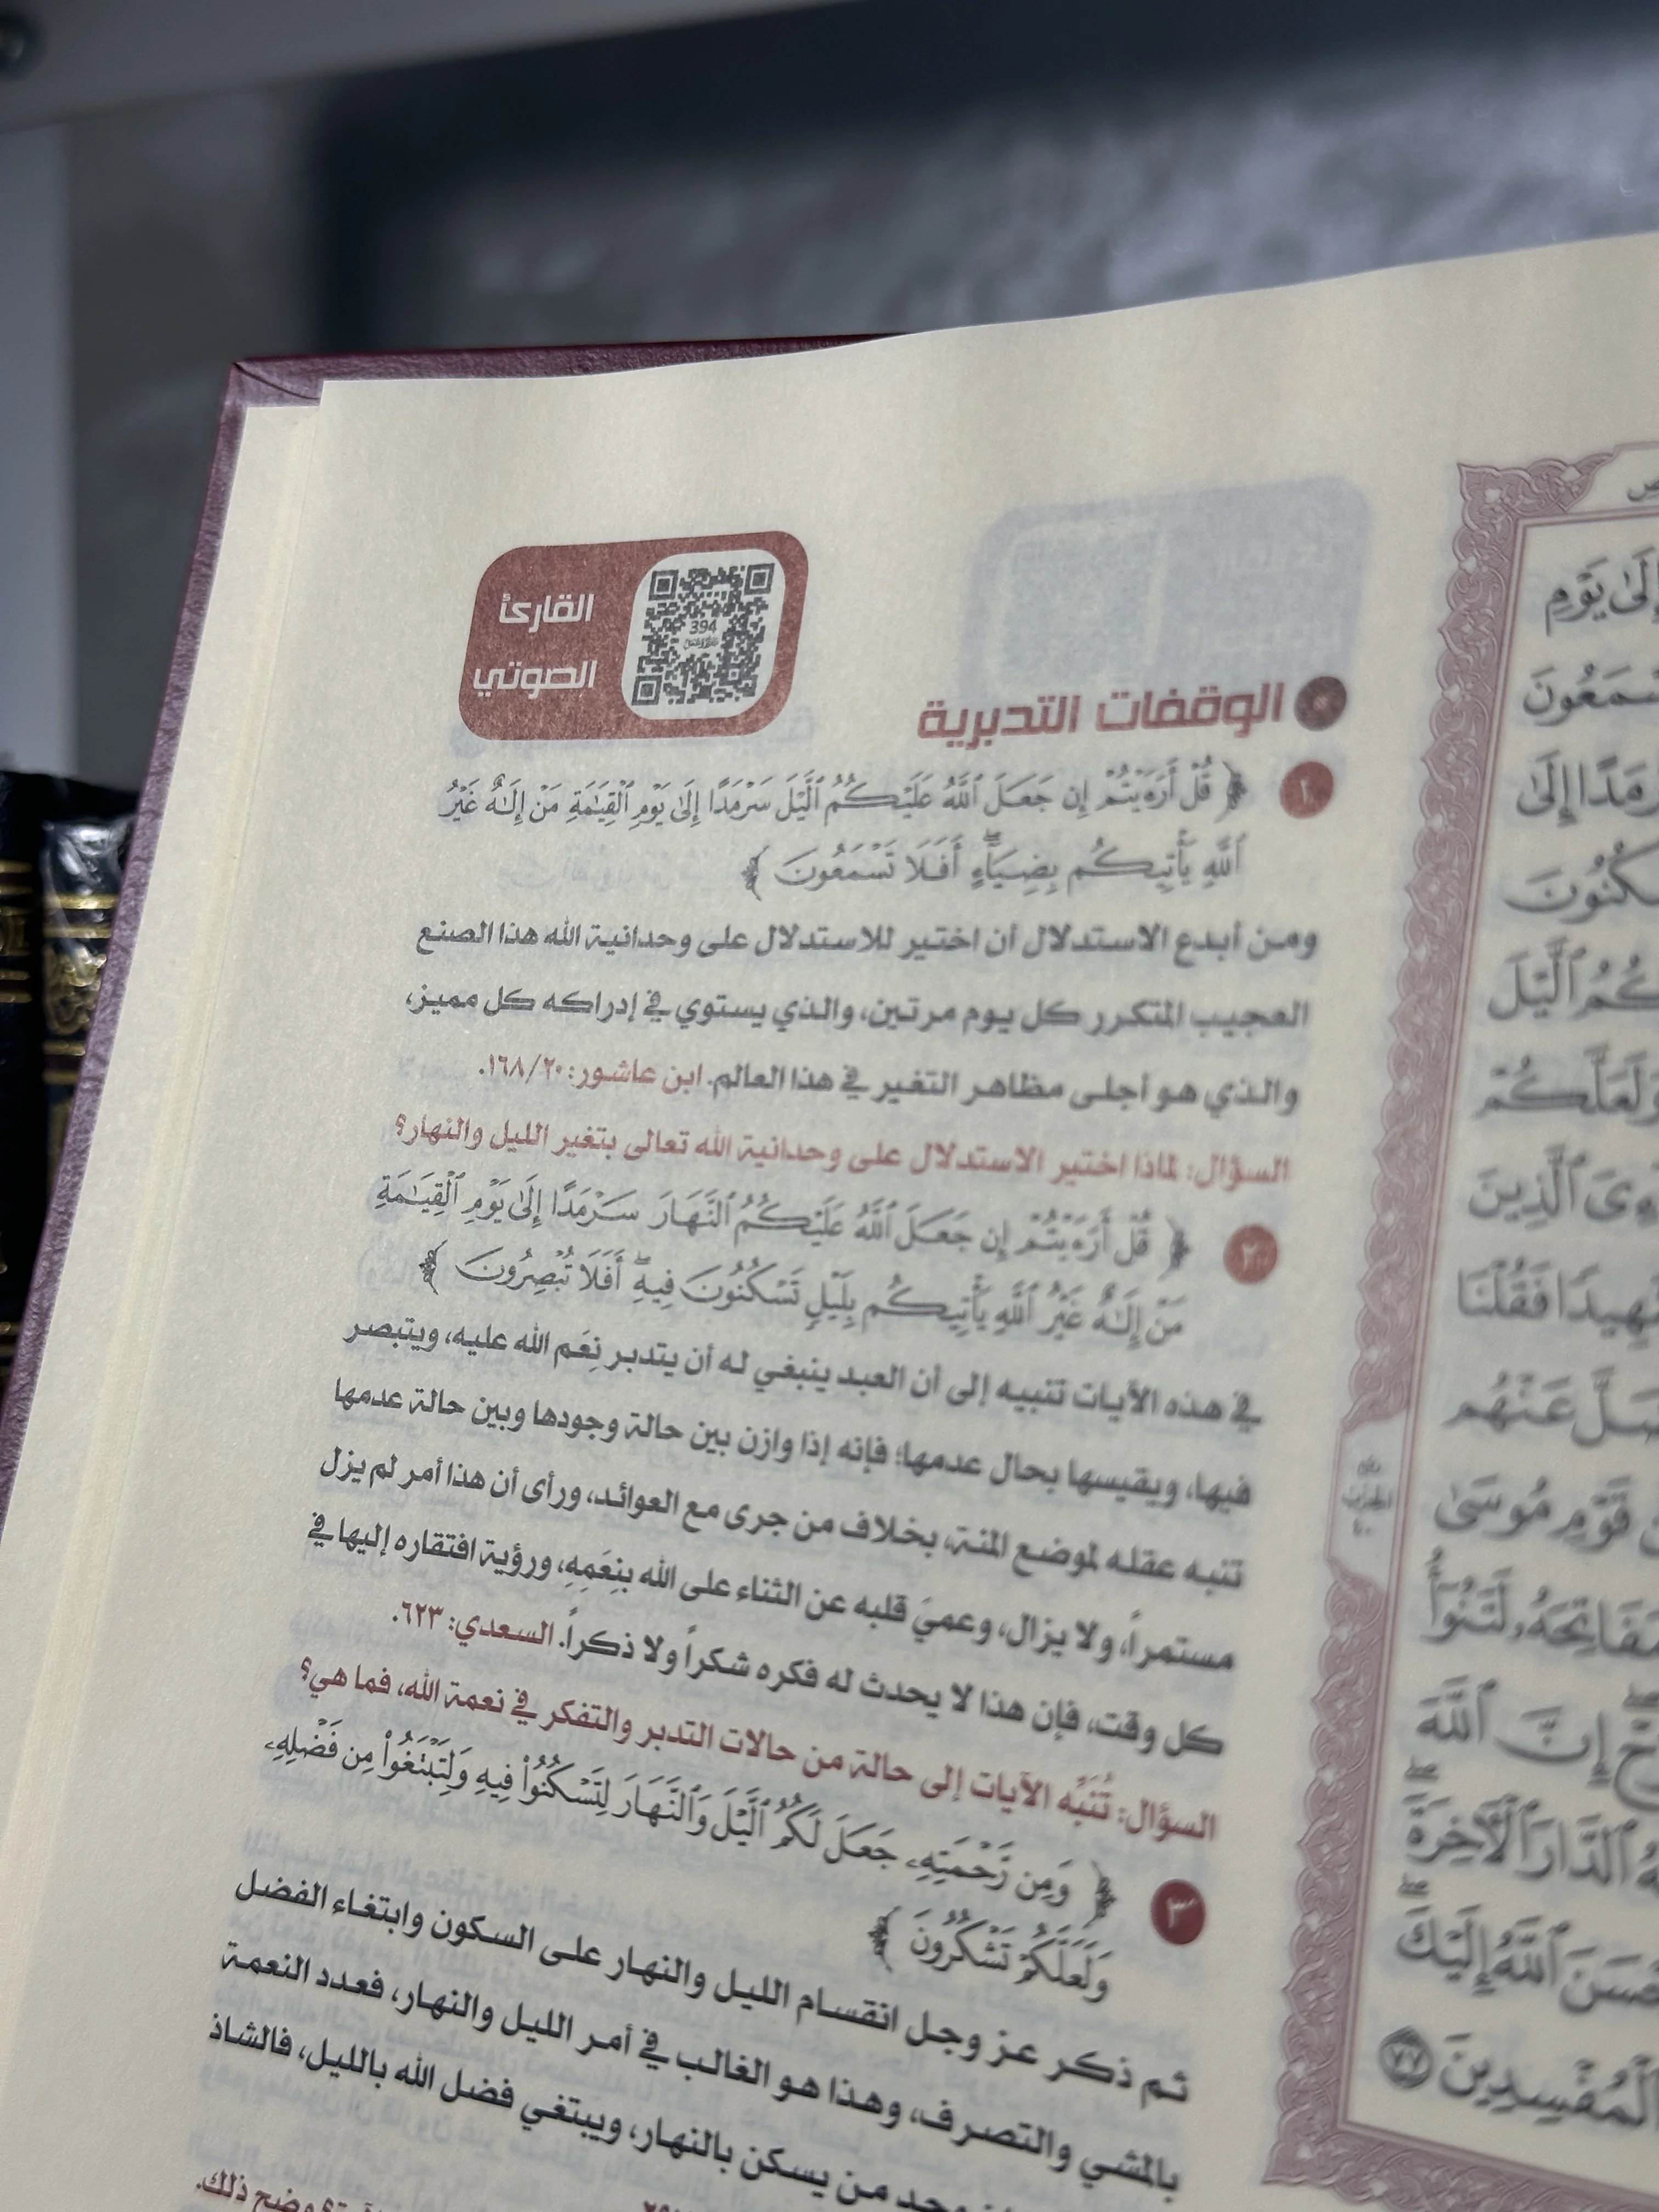 القارئ
الصوتي
394
الوقفات التدبرية
١
﴿ قُلْ أَرَءَيْتُمْ إِن جَعَلَ ٱللَّهُ عَلَيْكُمُ ٱلَّيْلَ سَرْمَدًا إِلَىٰ يَوْمِ ٱلْقِيَٰمَةِ مَنْ إِلَٰهٌ غَيْرُ
ٱللَّهِ يَأْتِيكُم بِضِيَآءٍ ۖ أَفَلَا تَسْمَعُونَ ﴾
ومن أبدع الاستدلال أن اختير للاستدلال على وحدانية الله هذا الصنع
العجيب المتكرر كل يوم مرتين، والذي يستوي في إدراكه كل مميز،
والذي هو أجلى مظاهر التغير في هذا العالم. ابن عاشور: ١٦٨/٢٠.
السؤال: لماذا اختير الاستدلال على وحدانية الله تعالى بتغير الليل والنهار؟
٢
﴿ قُلْ أَرَءَيْتُمْ إِن جَعَلَ ٱللَّهُ عَلَيْكُمُ ٱلنَّهَارَ سَرْمَدًا إِلَىٰ يَوْمِ ٱلْقِيَٰمَةِ
مَنْ إِلَٰهٌ غَيْرُ ٱللَّهِ يَأْتِيكُم بِلَيْلٍ تَسْكُنُونَ فِيهِ ۖ أَفَلَا تُبْصِرُونَ ﴾
في هذه الآيات تنبيه إلى أن العبد ينبغي له أن يتدبر نِعَم الله عليه، ويتبصر
فيها، ويقيسها بحال عدمها؛ فإنه إذا وازن بين حالة وجودها وبين حالة عدمها
تنبه عقله لموضع المنة، بخلاف من جرى مع العوائد، ورأى أن هذا أمر لم يزل
مستمراً، ولا يزال، وعميَ قلبه عن الثناء على الله بنِعَمِهِ، ورؤية افتقاره إليها في
كل وقت، فإن هذا لا يحدث له فكره شكراً ولا ذكراً. السعدي: ٦٢٣.
السؤال: تُنَبِّه الآيات إلى حالة من حالات التدبر والتفكر في نعمة الله، فما هي؟
٣
﴿ وَمِن رَّحْمَتِهِۦ جَعَلَ لَكُمُ ٱلَّيْلَ وَٱلنَّهَارَ لِتَسْكُنُوا۟ فِيهِ وَلِتَبْتَغُوا۟ مِن فَضْلِهِۦ
وَلَعَلَّكُمْ تَشْكُرُونَ ﴾
ثم ذكر عز وجل انقسام الليل والنهار على السكون وابتغاء الفضل
بالمشي والتصرف، وهذا هو الغالب في أمر الليل والنهار، فعدد النعمة
من يسكن بالنهار، ويبتغي فضل الله بالليل، فالشاذ
وضح ذلك.
إِلَىٰ يَوْمِ
تَسْمَعُونَ
سَرْمَدًا إِلَىٰ
تَسْكُنُونَ
لَكُمُ ٱلَّيْلَ
وَلَعَلَّكُمْ
ٱلَّذِينَ
شَهِيدًا فَقُلْنَا
وَضَلَّ عَنْهُم
قَوْمِ مُوسَىٰ
مَفَاتِحَهُۥ لَتَنُوٓأُ
إِنَّ ٱللَّهَ
ٱلدَّارَ ٱلْءَاخِرَةَ
أَحْسَنَ ٱللَّهُ إِلَيْكَ
ٱلْمُفْسِدِينَ ٧٧